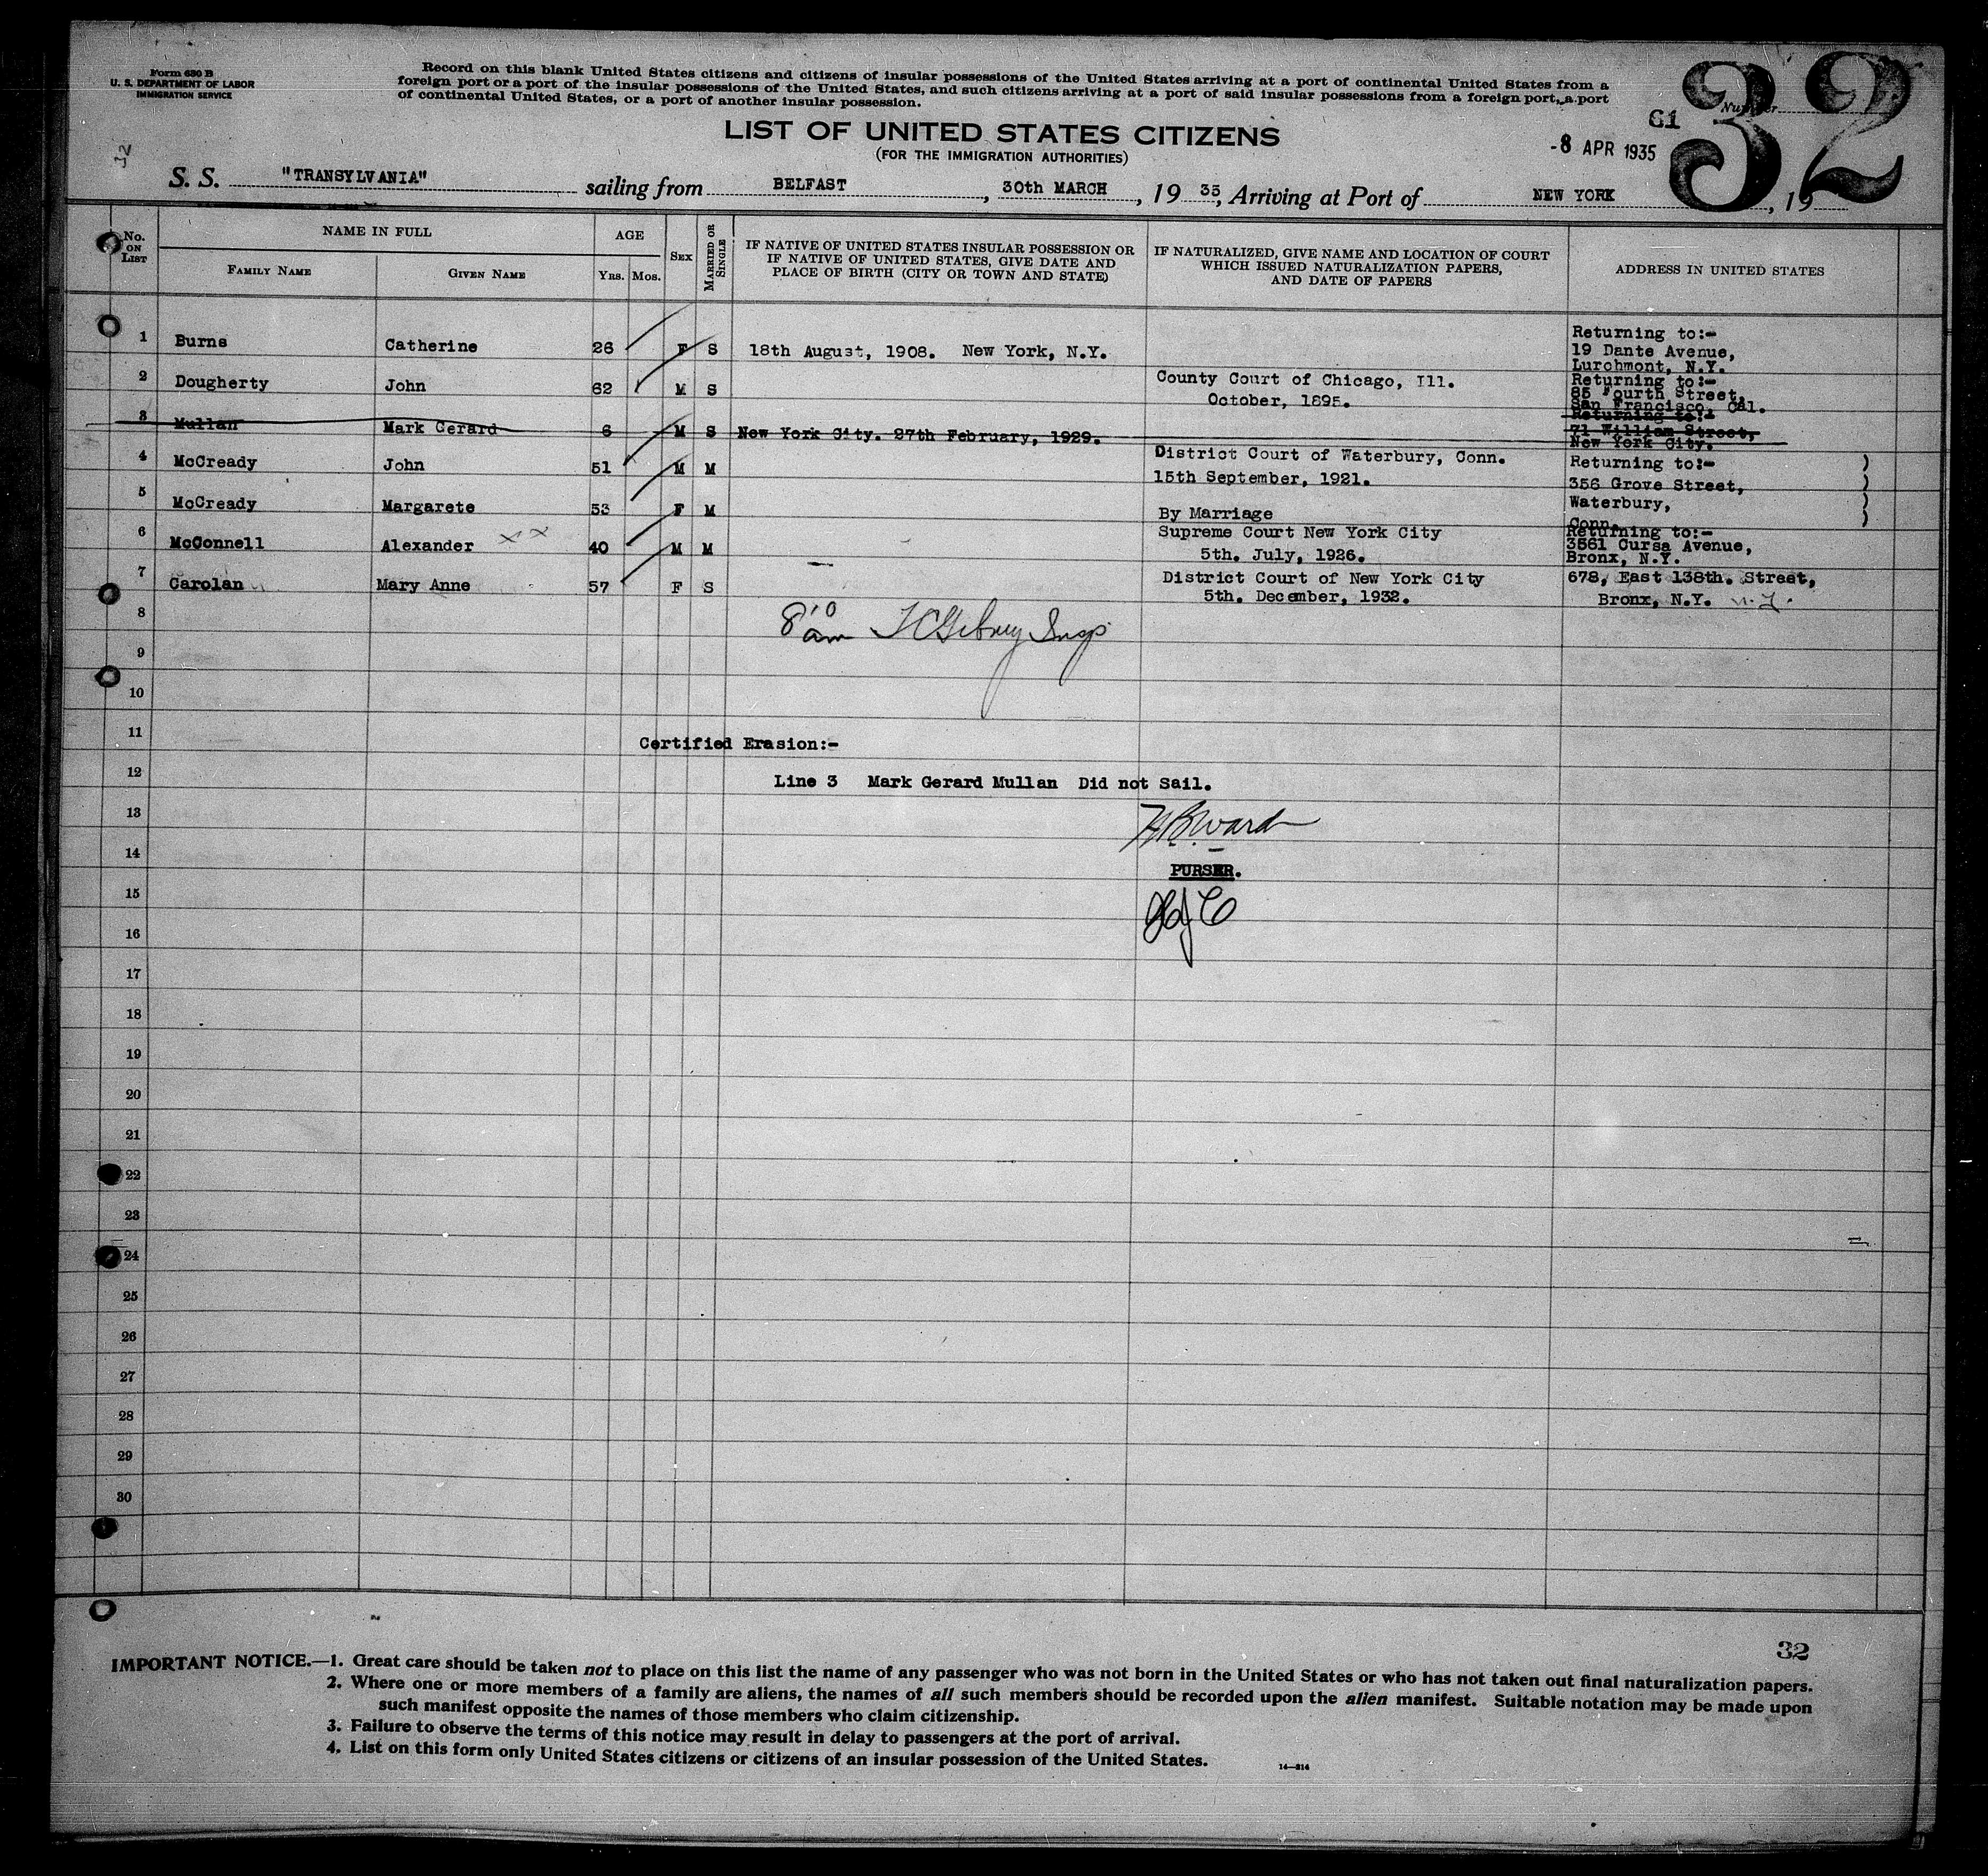 Form 630 B
U. S. DEPARTMENT OF LABOR
IMMIGRATION SERVICE
Record on this blank United States citizens and citizens of insular possessions of the United States arriving at a port of continental United States from a
foreign port or a port of the insular possessions of the United States, and such citizens arriving at a port of said insular possessions from a foreign port, a port
of continental United States, or a port of another insular possession.
Number
32
61
LIST OF UNITED STATES CITIZENS
(FOR THE IMMIGRATION AUTHORITIES)
-8 APR 1935
32
S. S. "TRANSYLVANIA" sailing from BELFAST, 30th MARCH, 19 35, Arriving at Port of NEW YORK, 19
No. ON LIST
NAME IN FULL
FAMILY NAME
GIVEN NAME
AGE
YRS.
MOS.
SEX
MARRIED OR SINGLE
IF NATIVE OF UNITED STATES INSULAR POSSESSION OR
IF NATIVE OF UNITED STATES, GIVE DATE AND
PLACE OF BIRTH (CITY OR TOWN AND STATE)
IF NATURALIZED, GIVE NAME AND LOCATION OF COURT
WHICH ISSUED NATURALIZATION PAPERS,
AND DATE OF PAPERS
ADDRESS IN UNITED STATES
1 Burns Catherine 26 F S 18th August, 1908. New York, N.Y.
Returning to:-
19 Dante Avenue,
Lurchmont, N.Y.
2 Dougherty John 62 M S County Court of Chicago, Ill.
October, 1895.
Returning to:-
85 Fourth Street,
San Francisco, Cal.
3 Mullan Mark Gerard 6 M S New York City. 27th February, 1929.
Returning to:-
71 William Street,
New York City.
4 McCready John 51 M M District Court of Waterbury, Conn.
15th September, 1921.
Returning to:- )
356 Grove Street, )
5 McCready Margarete 53 F M By Marriage
Waterbury, )
Conn.
6 McConnell Alexander x x 40 M M Supreme Court New York City
5th. July, 1926.
Returning to:-
3561 Cursa Avenue,
Bronx, N.Y.
7 Carolan Mary Anne 57 F S District Court of New York City
5th. December, 1932.
678, East 138th. Street,
Bronx, N.Y. n.y.
8
9
10
11
Certified Erasion:-
12
Line 3 Mark Gerard Mullan Did not Sail.
13
H.B. Ward
14
PURSER.
15
16
17
18
19
20
21
22
23
24
25
26
27
28
29
30
32
IMPORTANT NOTICE.—1. Great care should be taken not to place on this list the name of any passenger who was not born in the United States or who has not taken out final naturalization papers.
2. Where one or more members of a family are aliens, the names of all such members should be recorded upon the alien manifest. Suitable notation may be made upon
such manifest opposite the names of those members who claim citizenship.
3. Failure to observe the terms of this notice may result in delay to passengers at the port of arrival.
4. List on this form only United States citizens or citizens of an insular possession of the United States.
14—214